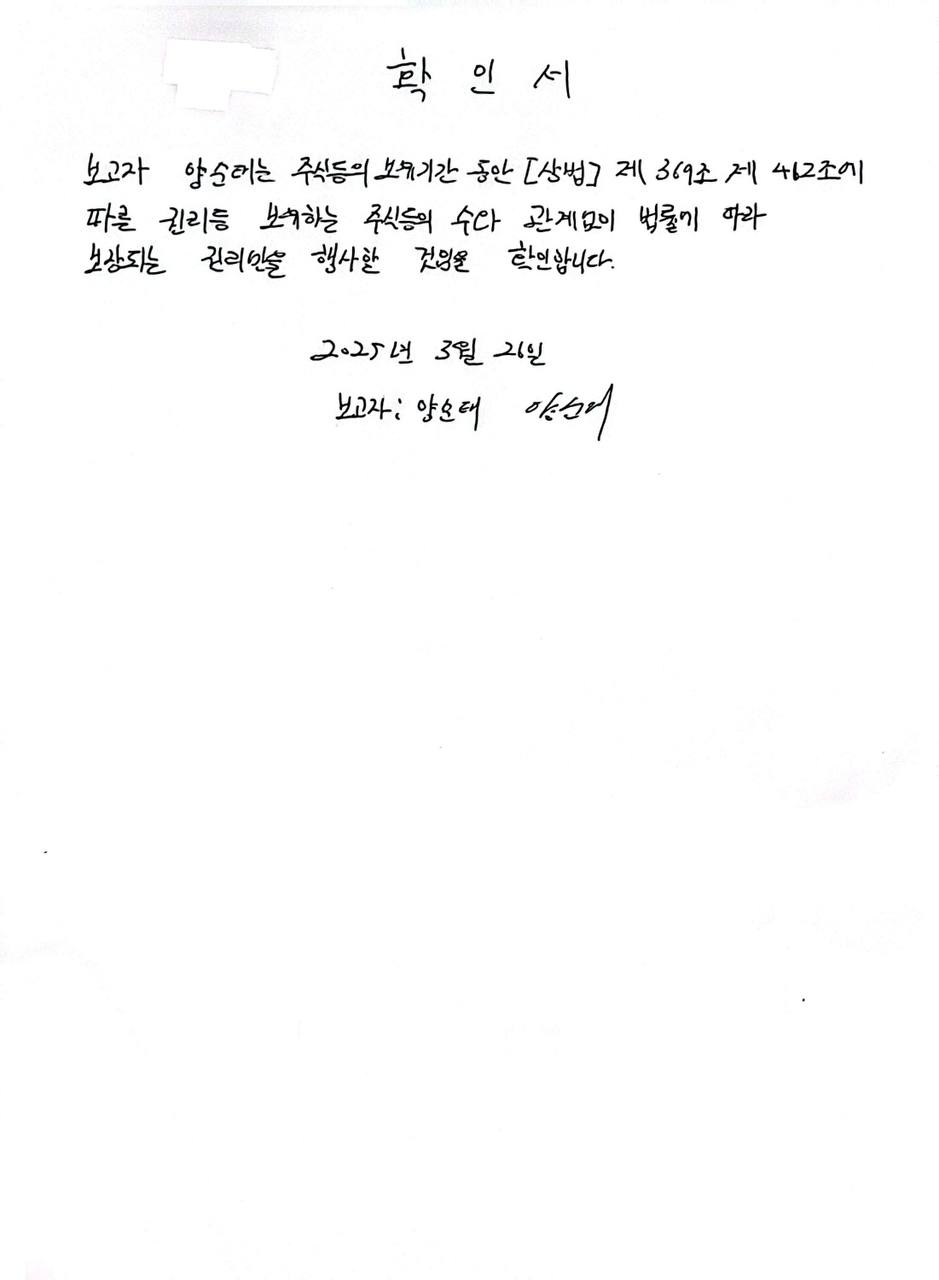 확 인 서
보고자 양순태는 주식등의 보유기간 동안 [상법] 제 369조 제 462조에
따른 권리등 보유하는 주식등의 수와 관계없이 법률에 따라
보장되는 권리만을 행사할 것임을 확인합니다.
2025년 3월 26일
보고자: 양순태 양순태